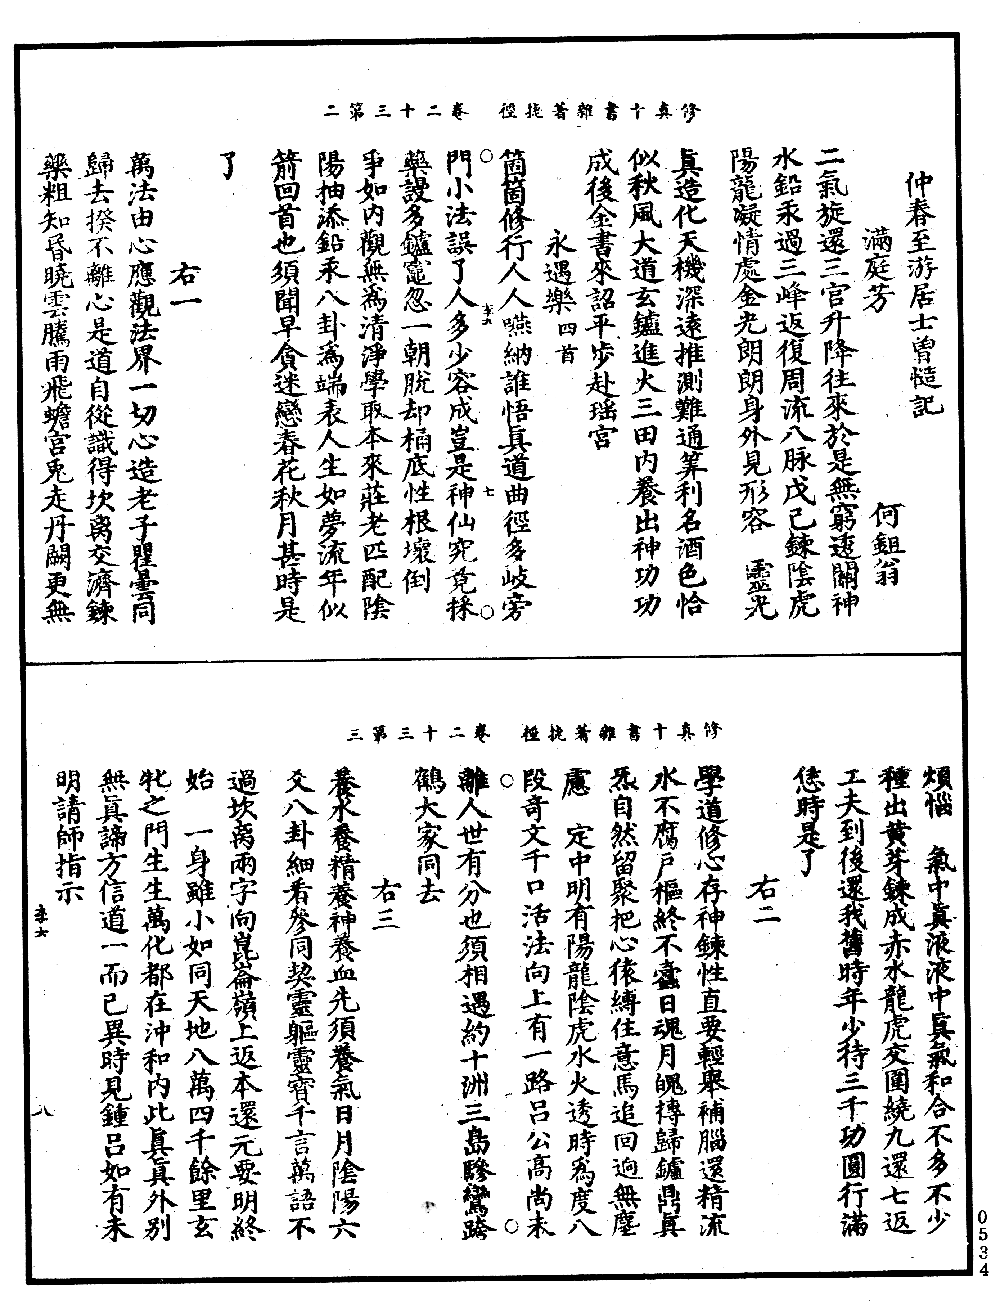 修真十書雜著捷徑　卷二十三第二
仲春至游居士曾慥記
滿庭芳　何鉏翁
二氣旋還三宮升降往來於是無窮逺關神
水鉛汞過三峰返復周流八脉戊己鍊陰虎
陽龍凝情處金光朗朗身外見形容　靈光
真造化天機深遠推測難通筭利名酒色恰
似秋風大道玄鑪進火三田內養出神功功
成後金書來詔平步赴瑶宮
永遇樂四首
箇箇修行人人嚥納誰悟真道曲徑多岐旁
門小法誤了人多少容成豈是神仙究竟採
藥謾多鑪竈忽一朝脫却桶底性根壞倒
爭如內觀無爲清淨學取本來莊老匹配陰
陽抽添鉛汞八卦爲端表人生如夢流年似
箭回首也須聞早貪迷戀春花秋月甚時是
了
右一
萬法由心應觀法界一切心造老子瞿曇同
歸去揆不離心是道自從識得坎离交濟鍊
藥粗知昏曉雲騰雨飛蟾宮兎走丹闕更無
修真十書雜著捷徑　卷二十三第三
煩惱　氣中真液液中真氣和合不多不少
種出黃芽鍊成赤水龍虎交圍繞九還七返
工夫到後還我舊時年少待三千功圓行滿
恁時是了
右二
學道修心存神鍊性直要輕舉補腦還精流
水不腐戸樞終不蠹日魂月魄摶歸鑪鼎真
炁自然留聚把心猿縛住意馬追回逈無塵
慮　定中明有陽龍陰虎水火透時爲度八
段奇文千口活法向上有一路呂公高尚未
離人世有分也須相遇約十洲三島驂鸞跨
鶴大家同去
右三
養水養精養神養血先須養氣日月陰陽六
爻八卦細看參同契靈軀靈寶千言萬語不
過坎离兩字向崑崙嶺上返本還元要明終
始　一身雖小如同天地八萬四千餘里玄
牝之門生生萬化都在沖和內此真真外別
無真諦方信道一而已異時見鍾呂如有未
明請師指示
0534